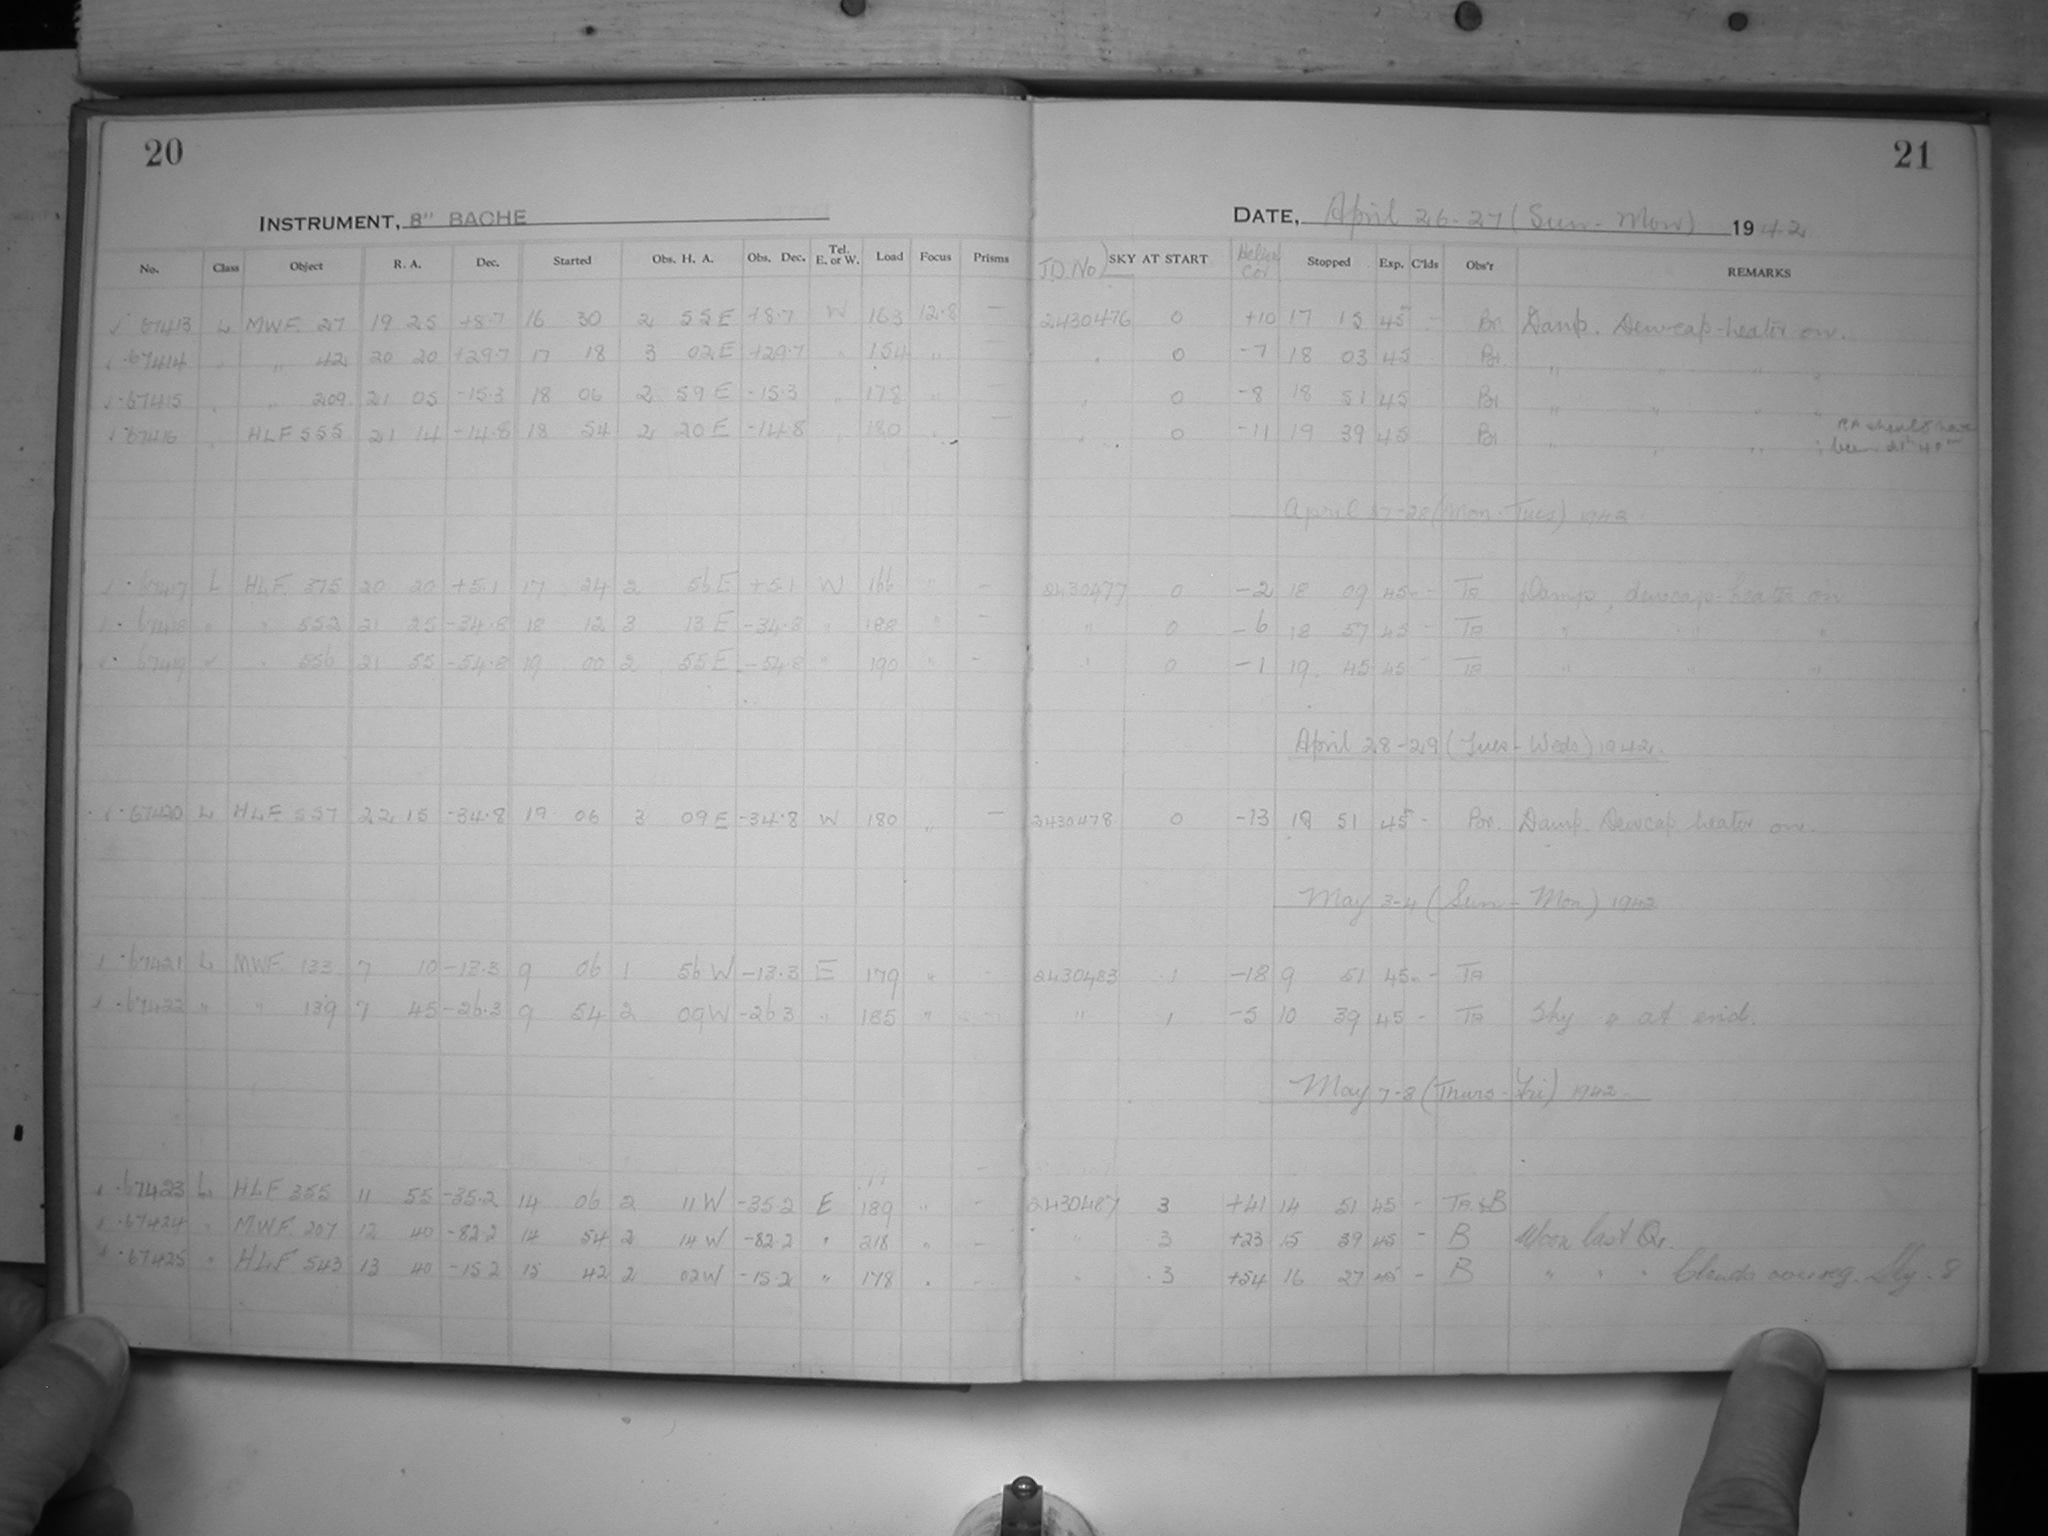 20
21
INSTRUMENT, 8" BACHE
DATE, April 26-27 (Sun - Mon) 1942
No. Class Object R. A. Dec. Started Obs. H. A. Obs. Dec. Tel. E. or W. Load Focus Prisms J.D. No SKY AT START Helio Cor Stopped Exp. C'lds Obs'r REMARKS
67413 L MWF 27 19 25 +8.7 16 30 2 55 E +8.7 W 163 12.8 — 2430476 0 +10 17 15 45 - Br. Damp. Dewcap-heater on.
67414 " " 42 20 20 +29.7 17 18 3 02 E +29.7 " 154 " — " 0 -7 18 03 45 Br. " " " "
67415 " " 209 21 05 -15.3 18 06 2 59 E -15.3 " 178 " — " 0 -8 18 51 45 Br " " " "
67416 " HLF 555 21 14 -14.8 18 54 2 20 E -14.8 " 180 " — " 0 -11 19 39 45 Br " " " " RA should have
been 21h 40m
April 27-28 (Mon-Tues) 1942
67417 L HLF 375 20 20 +5.1 17 24 2 56 E +5.1 W 166 " - 2430477 0 -2 18 09 45 - TA Damp, dewcap-heater on
67418 " " 552 21 25 -34.8 18 12 3 13 E -34.8 " 188 " - " 0 -6 18 57 45 - TA " " "
67419 " " 556 21 55 -54.8 19 00 2 55 E -54.8 " 190 " - " 0 -1 19 45 45 - TA " " "
April 28-29 (Tues - Weds) 1942.
67420 L HLF 557 22 15 -34.8 19 06 3 09 E -34.8 W 180 " — 2430478 0 -13 19 51 45 - Br. Damp. Dewcap heater on.
May 3-4 (Sun - Mon) 1942
67421 L MWF. 133 7 10 -13.3 9 06 1 56 W -13.3 E 179 " - 2430483 1 -18 9 51 45 - TA
67422 " " 139 7 45 -26.3 9 54 2 09 W -26.3 " 185 " - " 1 -5 10 39 45 - TA Sky at end.
May 7-8 (Thurs - Fri) 1942.
67423 L HLF 355 11 55 -35.2 14 06 2 11 W -35.2 E 189 " - 2430487 3 +41 14 51 45 - TA & B
67424 " MWF. 207 12 40 -82.2 14 54 2 14 W -82.2 " 218 " - " 3 +23 15 39 45 - B Moon last Qr.
67425 " HLF 543 13 40 -15.2 15 42 2 02 W -15.2 " 178 " - " 3 +54 16 27 45 - B " " " Clouds Sky - 8